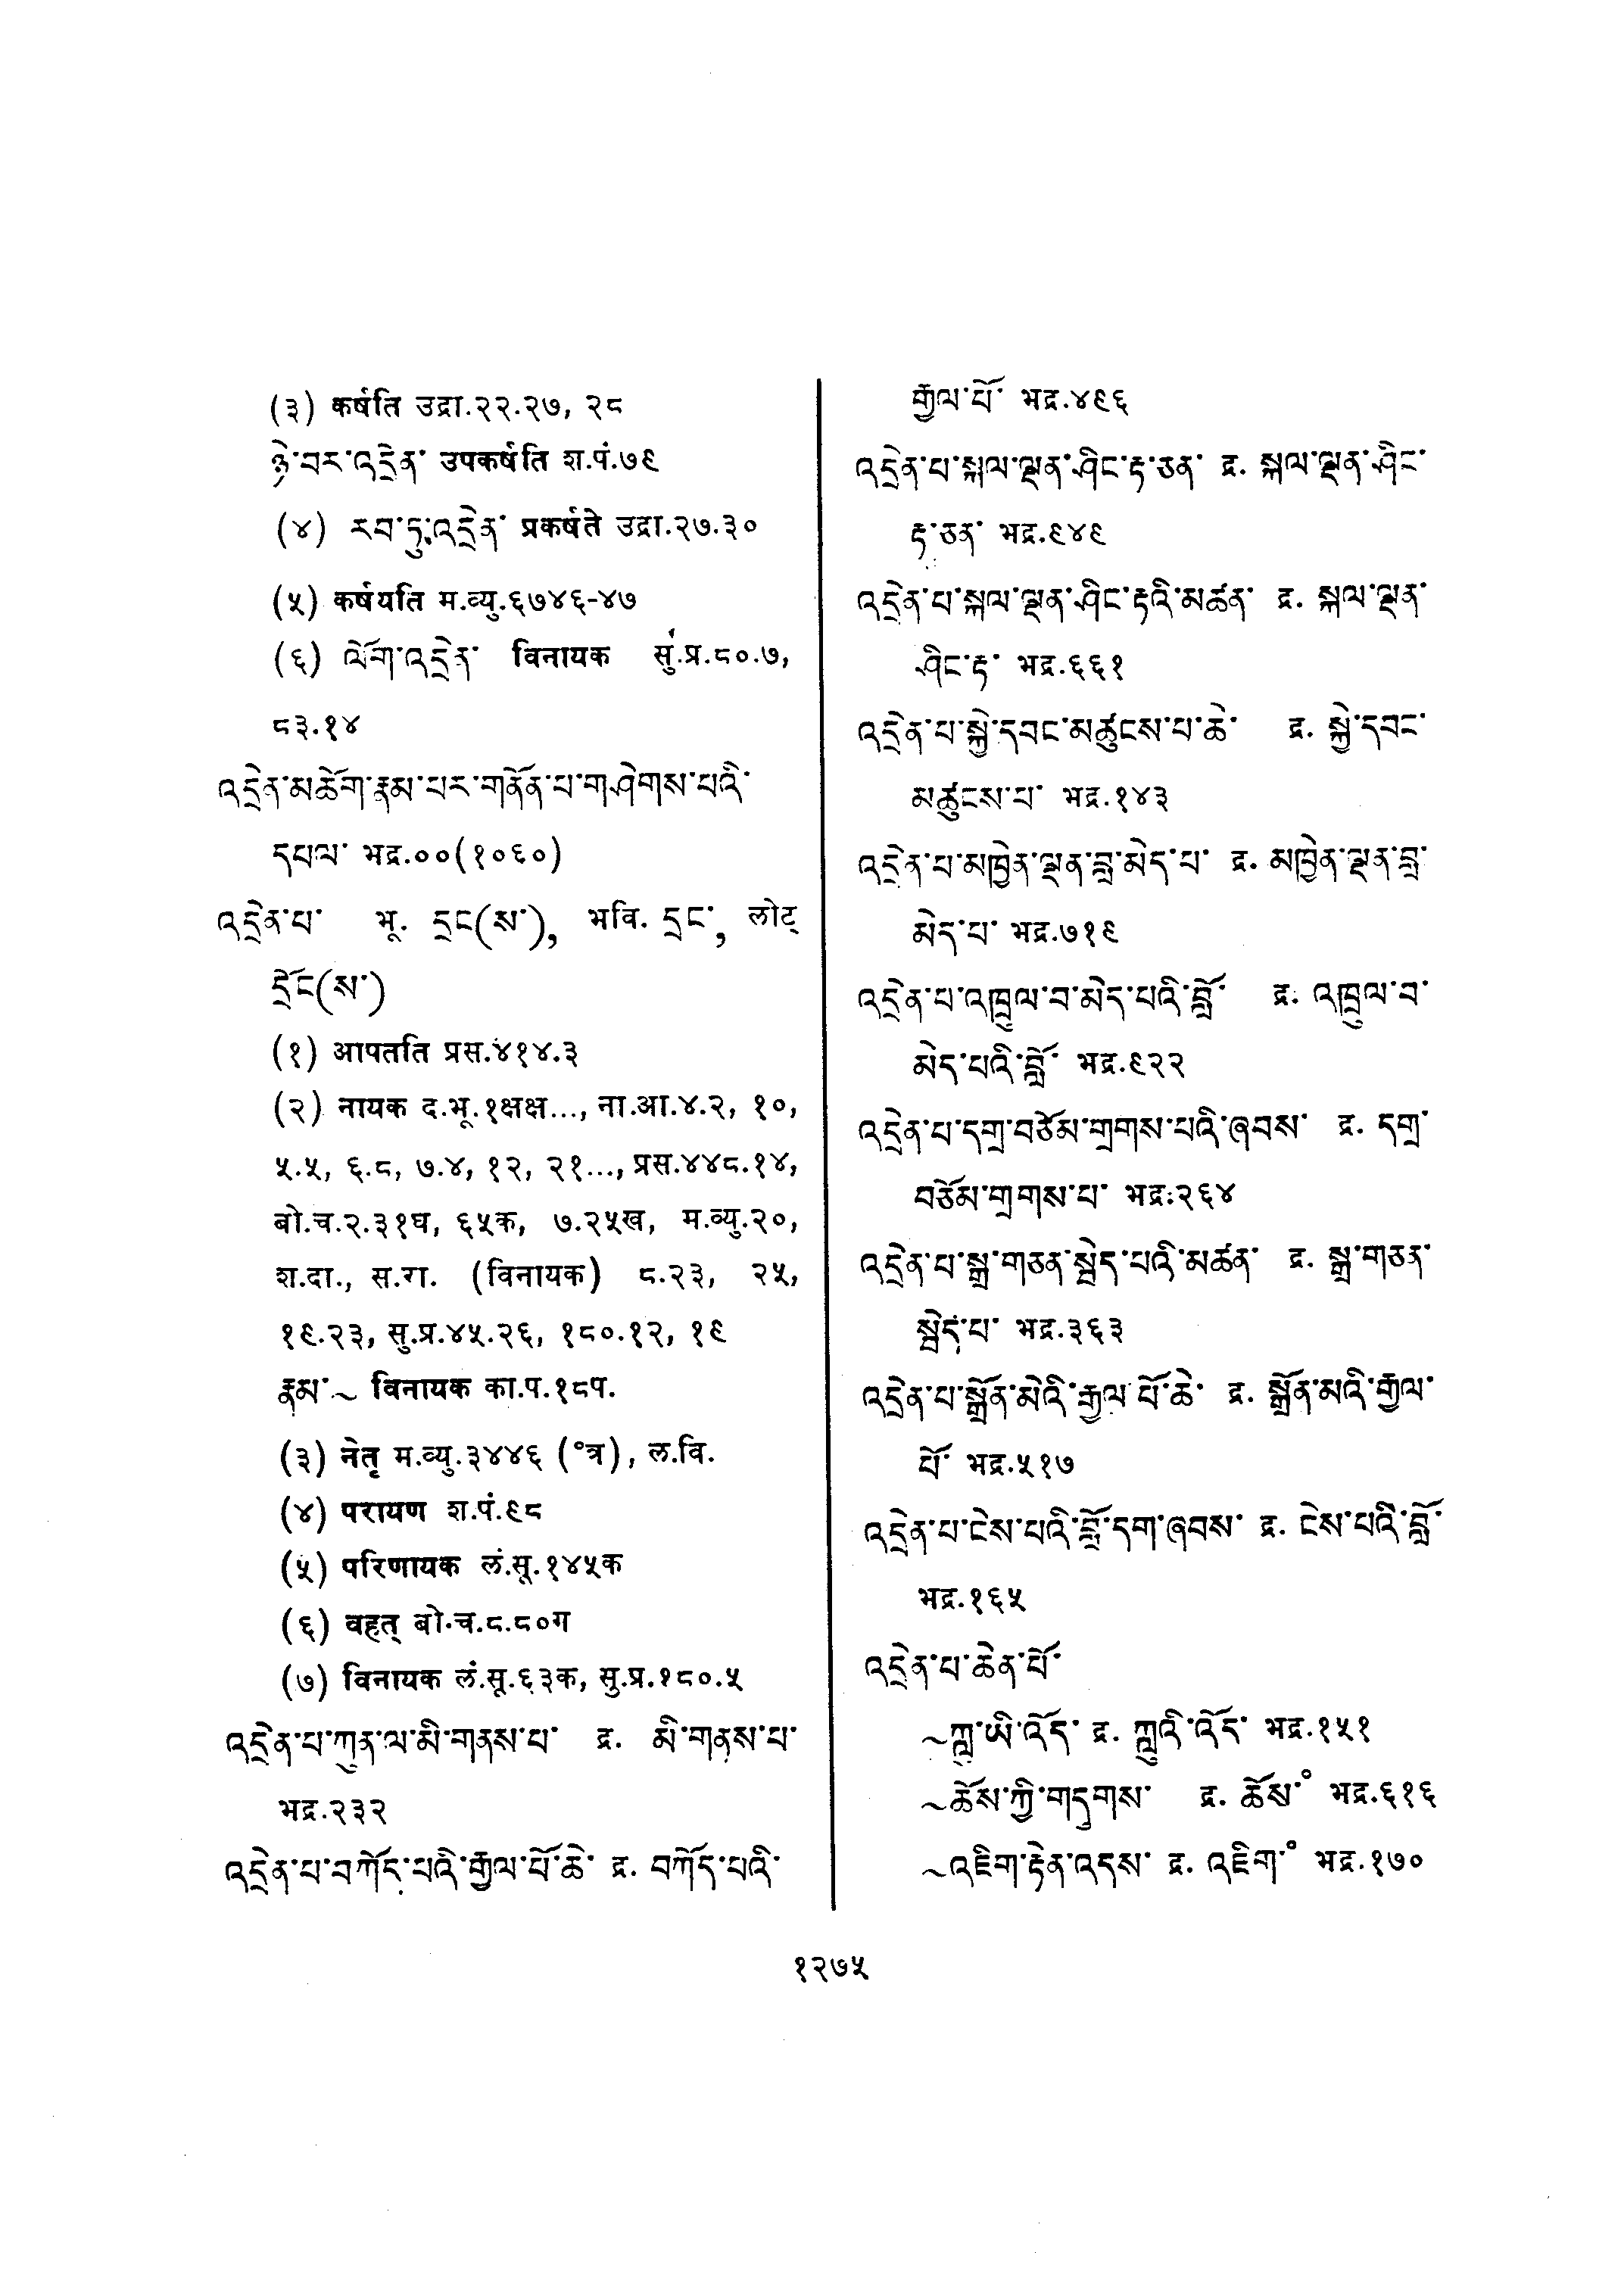 (३) कर्षति उद्रा.२२.२७, २८
ཉེ་བར་འདྲེན་ उपकर्षति श.पं.७९
(४) རབ་ཏུ་འདྲེན་ प्रकर्षते उद्रा.२७.३०
(५) कर्षयति म.व्यु.६७४६-४७
(६) ལོག་འདྲེན་ विनायक सुं.प्र.८०.७,
८३.१४
འདྲེན་མཆོག་རྣམ་པར་གནོན་པ་གཤེགས་པའི་
དཔལ་ भद्र.००(१०६०)
འདྲེན་པ་ भू. དྲང(ས་), भवि. དྲང་, लोट्
དྲོང(ས་)
(१) आपतति प्रस.४१४.३
(२) नायक द.भू.१क्षक्ष..., ना.आ.४.२, १०,
५.५, ६.८, ७.४, १२, २१..., प्रस.४४८.१४,
बो.च.२.३१घ, ६५क, ७.२५ख, म.व्यु.२०,
श.दा., स.रा. (विनायक) ८.२३, २५,
१९.२३, सु.प्र.४५.२६, १८०.१२, १९
རྣམ་~ विनायक का.प.१८प.
(३) नेतृ म.व्यु.३४४६ (°त्र), ल.वि.
(४) परायण श.पं.९८
(५) परिणायक लं.सू.१४५क
(६) वहत् बो.च.८.८०ग
(७) विनायक लं.सू.६३क, सु.प्र.१८०.५
འདྲེན་པ་ཀུན་ལ་མི་གནས་པ་ द्र. མི་གནས་པ་
भद्र.२३२
འདྲེན་པ་བཀོད་པའི་རྒྱལ་པོ་ཆེ་ द्र. བཀོད་པའི་
རྒྱལ་པོ་ भद्र.४९६
འདྲེན་པ་སྐལ་ལྡན་ཤིང་རྟ་ཅན་ द्र. སྐལ་ལྡན་ཤིང་
རྟ་ཅན་ भद्र.९४९
འདྲེན་པ་སྐལ་ལྡན་ཤིང་རྟའི་མཚན་ द्र. སྐལ་ལྡན་
ཤིང་རྟ་ भद्र.६६१
འདྲེན་པ་སྐྱེ་དབང་མཚུངས་པ་ཆེ་ द्र. སྐྱེ་དབང་
མཚུངས་པ་ भद्र.१४३
འདྲེན་པ་མཁྱེན་ལྡན་བླ་མེད་པ་ द्र. མཁྱེན་ལྡན་བླ་
མེད་པ་ भद्र.७१९
འདྲེན་པ་འཁྲུལ་བ་མེད་པའི་བློ་ द्र. འཁྲུལ་བ་
མེད་པའི་བློ་ भद्र.९२२
འདྲེན་པ་དགྲ་བཅོམ་གྲགས་པའི་ཞབས་ द्र. དགྲ་
བཅོམ་གྲགས་པ་ भद्र.२६४
འདྲེན་པ་སྒྲ་གཅན་སྦེད་པའི་མཚན་ द्र. སྒྲ་གཅན་
སྦེད་པ་ भद्र.३६३
འདྲེན་པ་སྒྲོན་མེའི་རྒྱལ་པོ་ཆེ་ द्र. སྒྲོན་མའི་རྒྱལ་
པོ་ भद्र.५१७
འདྲེན་པ་ངེས་པའི་བློ་དག་ཞབས་ द्र. ངེས་པའི་བློ་
भद्र.१६५
འདྲེན་པ་ཆེན་པོ་
~ཀླུ་ཡི་འོད་ द्र. ཀླུའི་འོད་ भद्र.१५१
~ཆོས་ཀྱི་གདུགས་ द्र. ཆོས་° भद्र.६१६
~འཇིག་རྟེན་འདས་ द्र. འཇིག་° भद्र.१७०
१२७५